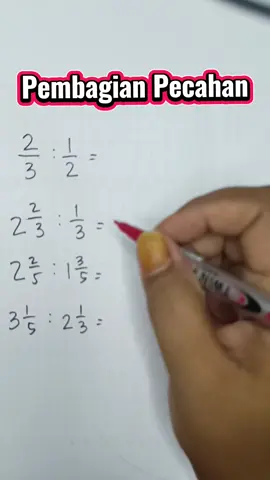 Pembagian Pecahan
2/3 : 1/2 =
2 2/3 : 1/3 =
2 2/5 : 1 3/5 =
3 1/5 : 2 1/3 =